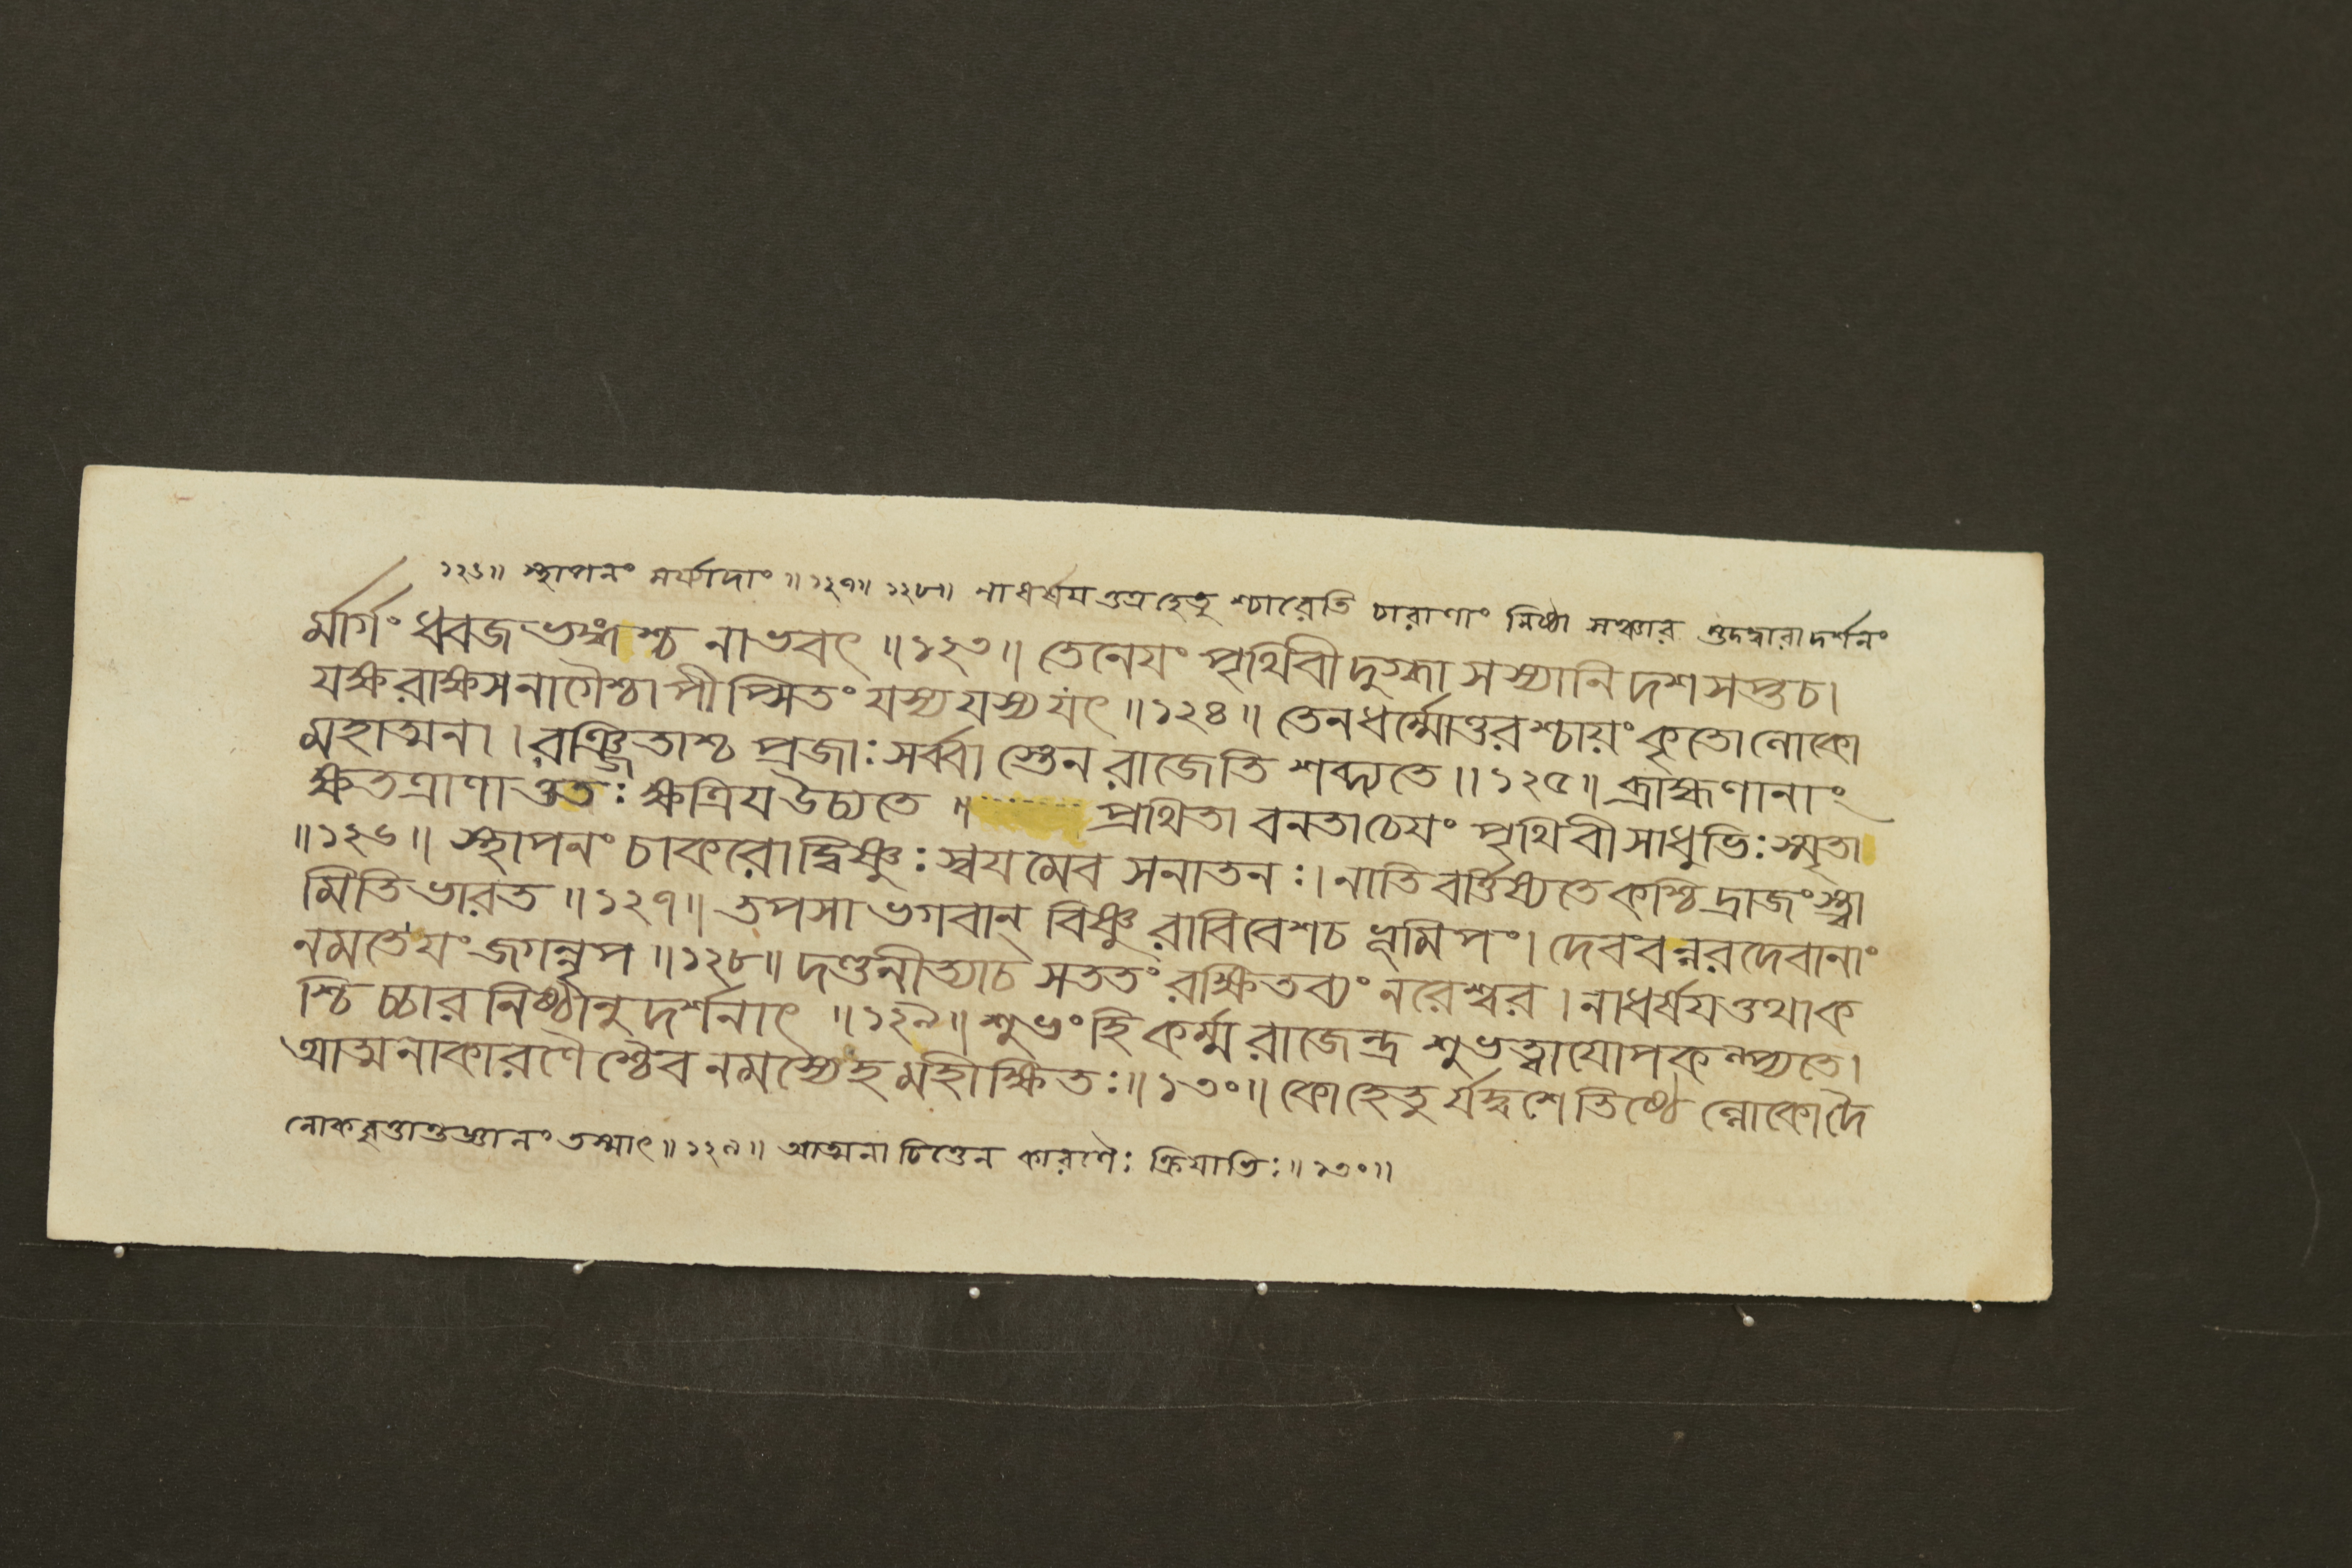 ১২৬॥ স্থাপনং মর্য্যাদাং॥১২৭॥ ১২৮॥ নাধর্ষযত্তত্রহেতু শ্চারেতি চারাণাং নিষ্ঠা সঞ্চার স্তদদ্বারাদর্শনং
র্মার্গং ধ্বজভঙ্গশ্চ নাভবৎ॥১২৩॥ তেনেযং পৃথিবীদুগ্ধা সস্যানি দশ সপ্ত চ।
যক্ষরাক্ষসনাগৈশ্চাপীপ্সিতং যস্য যস্য যৎ॥১২৪॥ তেনধর্ম্মোত্তরশ্চায়ং কৃতোলোকো
মহাত্মনা। রঞ্জিতাশ্চ প্রজাঃ সর্ব্বা স্তেন রাজেতি শব্দ্যতে॥১২৫॥ ব্রাহ্মণানাং
ক্ষতত্রাণাত্ততঃ ক্ষত্রিয উচ্যতে॥ প্রথিতা বনতাচেযং পৃথিবী সাধুভিঃ স্মৃতা
॥১২৬॥ স্থাপনং চাকরোদ্বিষ্ণুঃ স্বযমেব সনাতনঃ। নাতিবর্ত্তিষ্যতে কশ্চিদ্রাজংস্ত্বা
মিতি ভারত॥১২৭॥ তপসা ভগবান্ বিষ্ণু রাবিবেশ চ ভূমিপং। দেববন্নরদেবানাং
নমতেযং জগন্নৃপ॥১২৮॥ দণ্ডনীত্যাচ সততং রক্ষিতব্যং নরেশ্বর। নাধর্ষযত্তথাক
শ্চিচ্চারনিষ্ঠানুদর্শনাৎ॥১২৯॥ শুভং হি কর্ম্ম রাজেন্দ্র শুভত্বাযোপকল্প্যতে।
আত্মনাকারণৈশ্চৈব নমস্যেহ মহীক্ষিতঃ॥১৩০॥ কোহেতুর্যদ্বশে তিষ্ঠেল্লোকো দৈ
লোকবৃত্তান্তজ্ঞানং তস্মাৎ॥১২৯॥ আত্মনা চিত্তেন কারণৈঃ ক্রিযাভিঃ॥১৩০॥